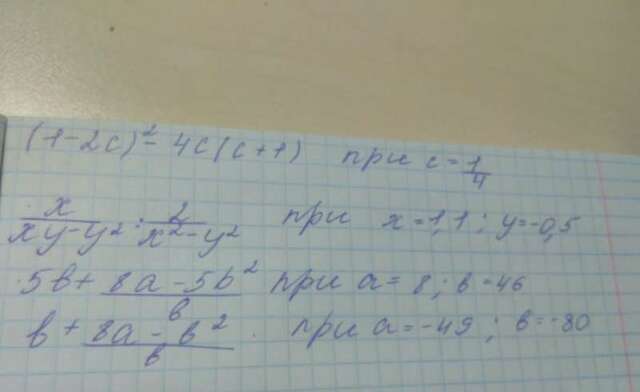 (1-2c)² - 4c(c+1) при c = 1/4
x/(xy-y²) · 2/(x²-y²) при x = 1,1; y = -0,5
5b + (8a-5b²)/b при a = 8; b = 46
b + (8a-b²)/b при a = -49; b = -80